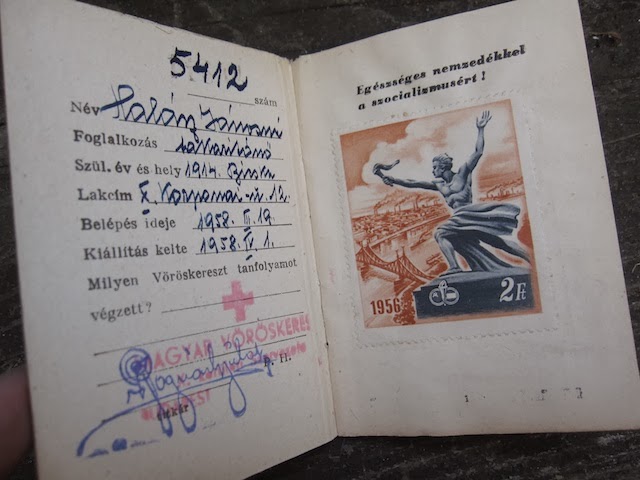 5412 szám
Név Halász Jánosné
Foglalkozás
Szül. év és hely 1914.
Lakcím X. Kozponai-u. 12.
Belépés ideje 1958. III. 19.
Kiállítás kelte 1958. IV. 1.
Milyen Vöröskereszt tanfolyamot
végzett?
MAGYAR VÖRÖSKERES
szervezete
P. H.
titkár
Egészséges nemzedékkel
a szocializmusért!
1956
2 Ft